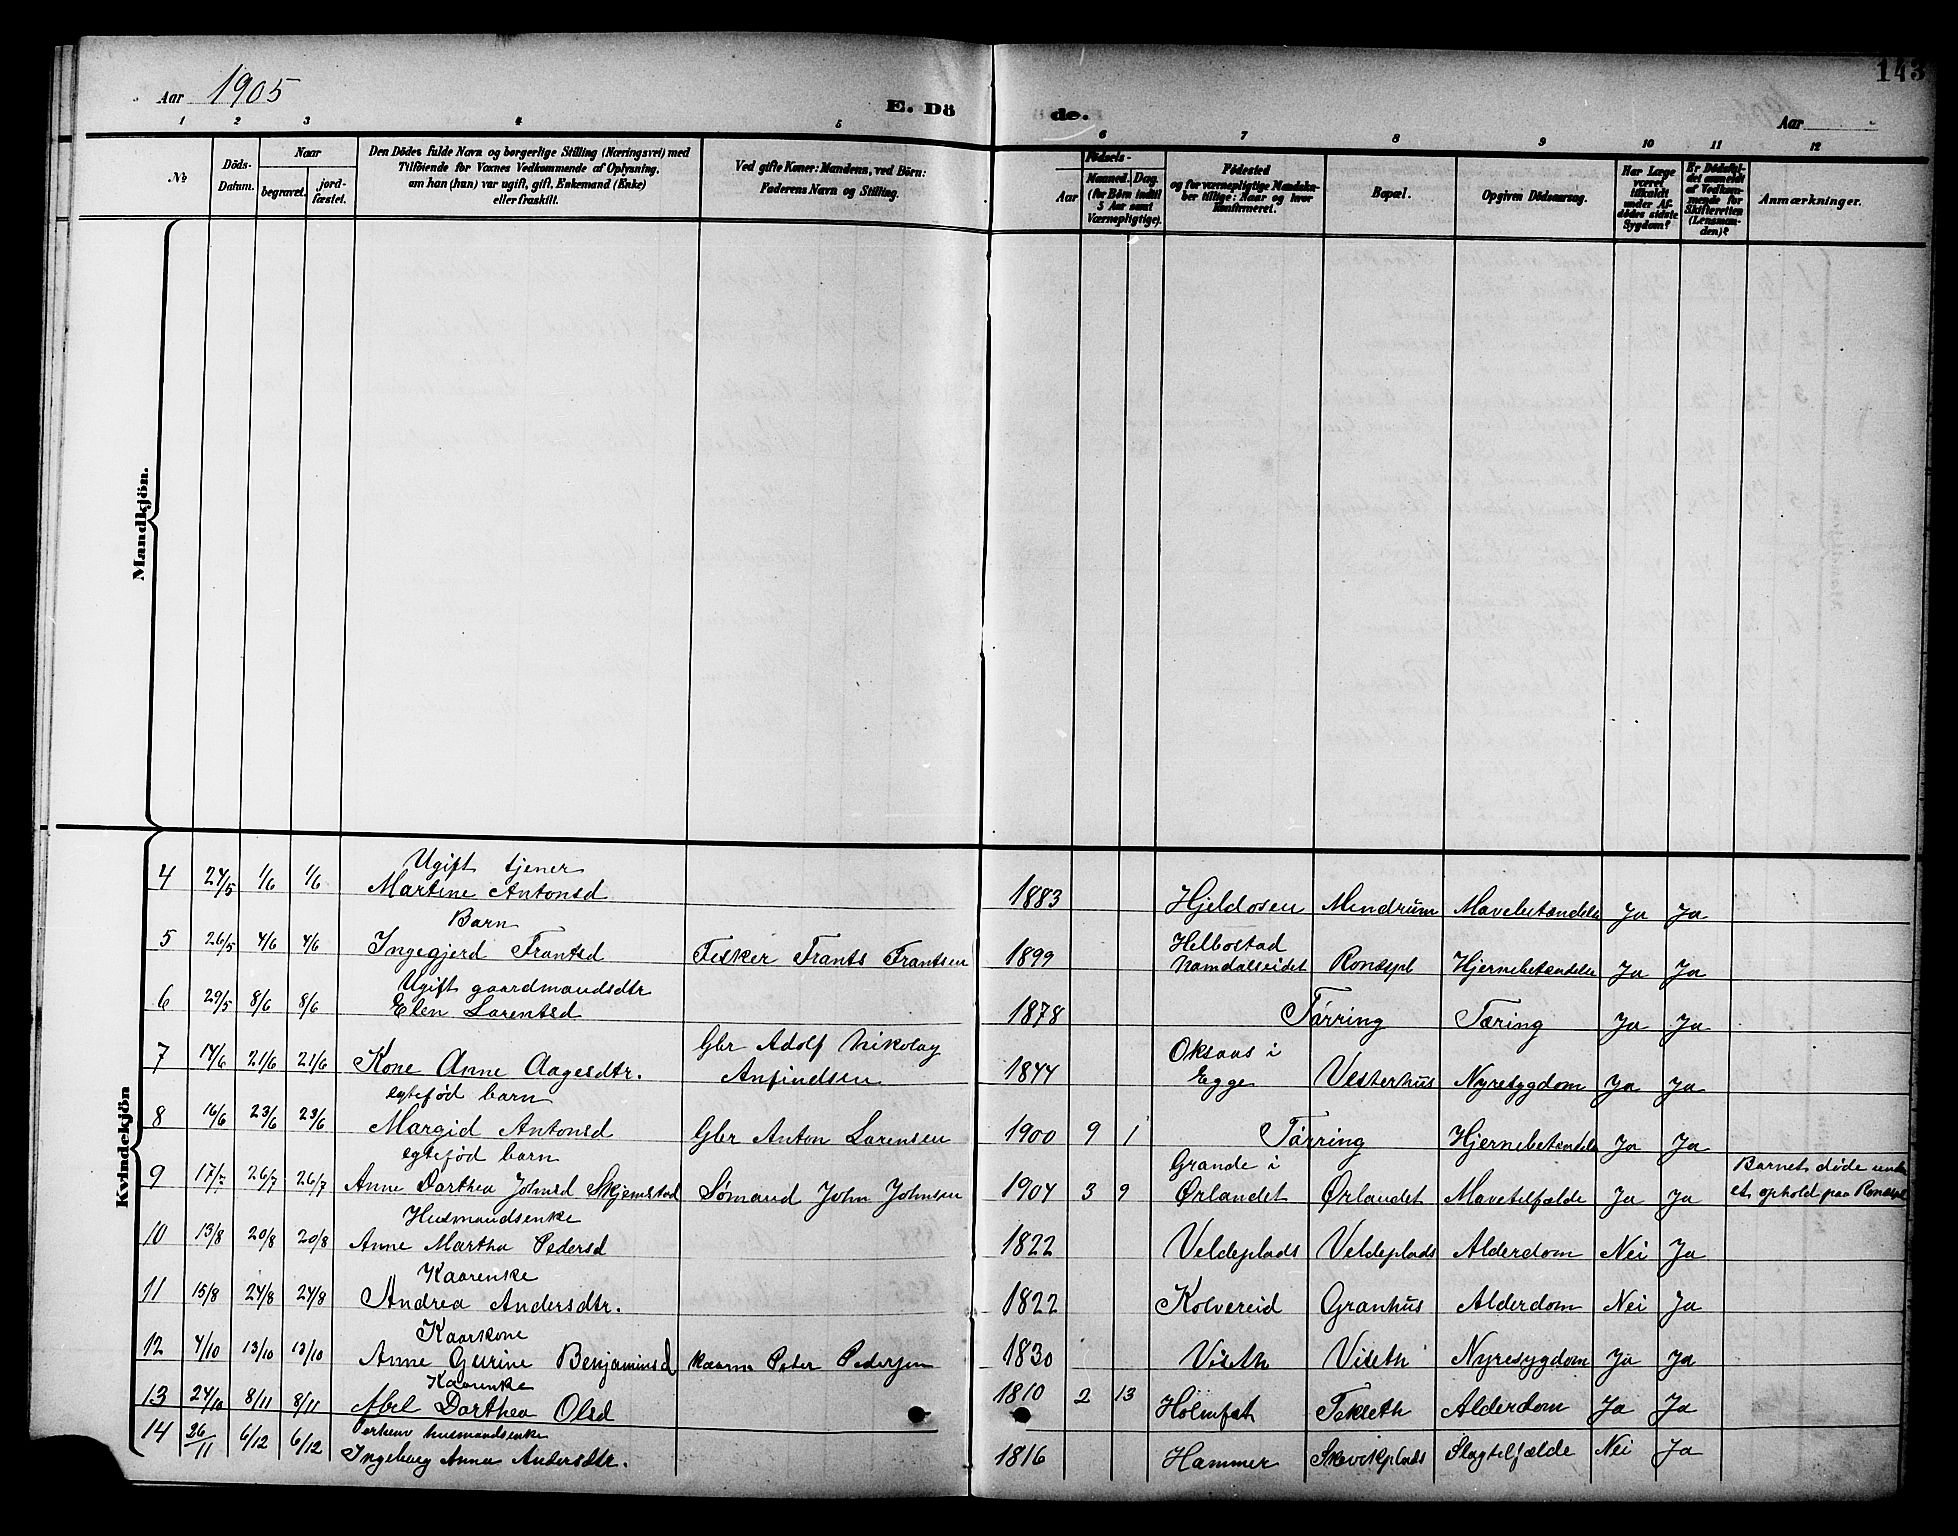 143
Aar 1905
E. Dö
de.
Aar
1 2 3 4 5 6 7 8 9 10 11 12
№
Döds-Datum.
Naar
begravet.
jord-fæstet.
Den Dödes fulde Navn og borgerlige Stilling (Næringsvei) med
Tilföiende for Voxnes Vedkommende af Oplysning,
om han (hun) var ugift, gift, Enkemand (Enke)
eller fraskilt.
Ved gifte Koner: Mandens, ved Börn:
Faderens Navn og Stilling.
Födsels-
Aar
Maaned. Dag.
(for Börn indtil
5 Aar samt
Værnepligtige).
Födested
og for værnepligtige Mandskaber tillige: Naar og hvor
Konfirmeret.
Bopæl.
Opgiven Dödsaarsag.
Har Læge været tilkaldt under Afdödes sidste Sygdom?
Er Dödsfaldet anmeldt af Vedkommende for Skifteretten (Lensmanden)?
Anmærkninger.
Mandkjön.
Kvindekjön
Ugift tjener
4 24/5 1/6 1/6 Martine Antonsd 1883 Hjeldosen Mendrum Mavebetændelse Ja Ja
Barn
Helbostad
5 26/5 4/6 4/6 Ingegjerd Frantsd Fisker Frants Frantsen 1899 Namdalseidet Ronæspl Hjernebetændelse Ja Ja
Ugift gaardmandsdtr
6 29/5 8/6 8/6 Elen Larentsd 1878 Tørring Tæring Ja Ja
Gbr Adolf Nikolay
Oksaas i
7 14/6 21/6 21/6 Kone Anne Aagesdtr. Anfindsen 1844 Egge Vesterhus Nyresygdom Ja Ja
egtefød barn
8 16/6 23/6 23/6 Margid Antonsd Gbr Anton Larensen 1900 9 1 Tørring Hjernebetændelse Ja Ja
egtefød barn
Grande i
Barnet døde under
9 17/7 26/7 26/7 Anne Dorthea Johnsd Skjemstad Sømand John Johnsen 1904 3 9 Ørlandet Ørlandet Mavetilfælde Ja Ja et ophold paa Ronæspl
Husmandsenke
10 13/8 20/8 20/8 Anne Martha Pedersd 1822 Veldeplads Veldeplads Alderdom Nei Ja
Kaarenke
11 15/8 24/8 24/8 Andrea Andersdtr. 1822 Kolvereid Granhus Alderdom Nei Ja
Kaarkone
12 4/10 13/10 13/10 Anne Gurine Benjaminsd Kaarm Peter Pedersen 1830 Viseth Viseth Nyresygdom Ja Ja
Kaarenke
13 24/10 8/11 8/11 Abel Dorthea Olsd 1810 2 13 Holmset Tekseth Alderdom Ja Ja
husmandsenke
14 26/11 6/12 6/12 Ingeborg Anna Andersdtr. 1816 Hammer Skevikplads Slagtilfælde Nei Ja